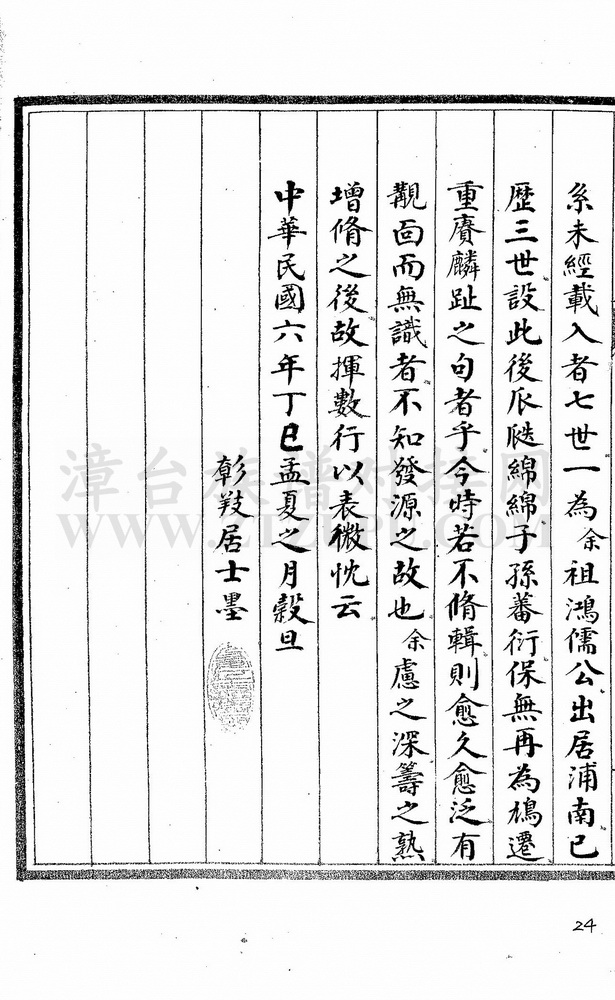 系未經載入者七世一為余祖鴻儒公出居浦南已
歷三世設此後瓜瓞綿綿子孫蕃衍保無再為鳩遷
重賡麟趾之句者乎今時若不脩輯則愈久愈泛有
覿面而無識者不知發源之故也余慮之深籌之熟
增脩之後故揮數行以表微忱云
中華民國六年丁巳孟夏之月穀旦
彰羖居士墨
漳台族谱对接网
24